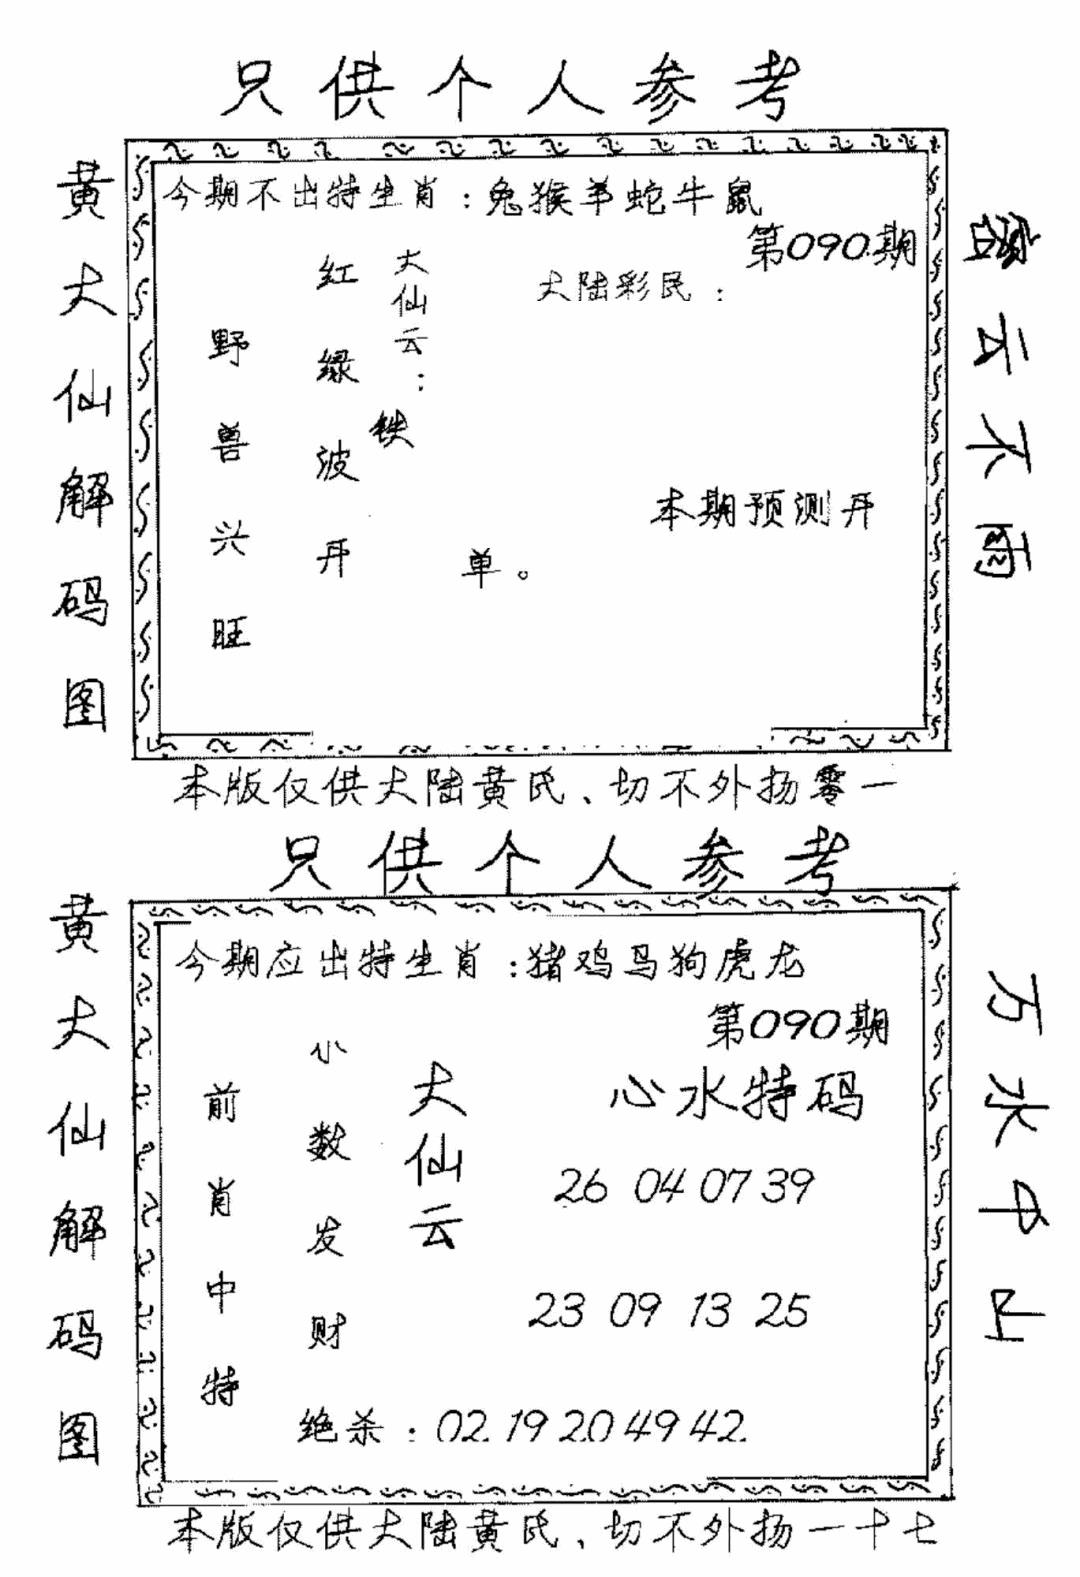 只供个人参考
黄大仙解码图
今期不出特生肖：兔猴羊蛇牛鼠
第090期
大陆彩民：
大仙云：
铁
红绿波开
单。
野兽兴旺
本期预测开
云不雨
本版仅供大陆黄氏、切不外扬零一
只供个人参考
黄大仙解码图
今期应出特生肖：猪鸡马狗虎龙
第090期
心水特码
大仙云
小数发财
前肖中特
26 04 07 39
23 09 13 25
绝杀：02.19 20 49 42.
万水中山
本版仅供大陆黄氏、切不外扬一十七